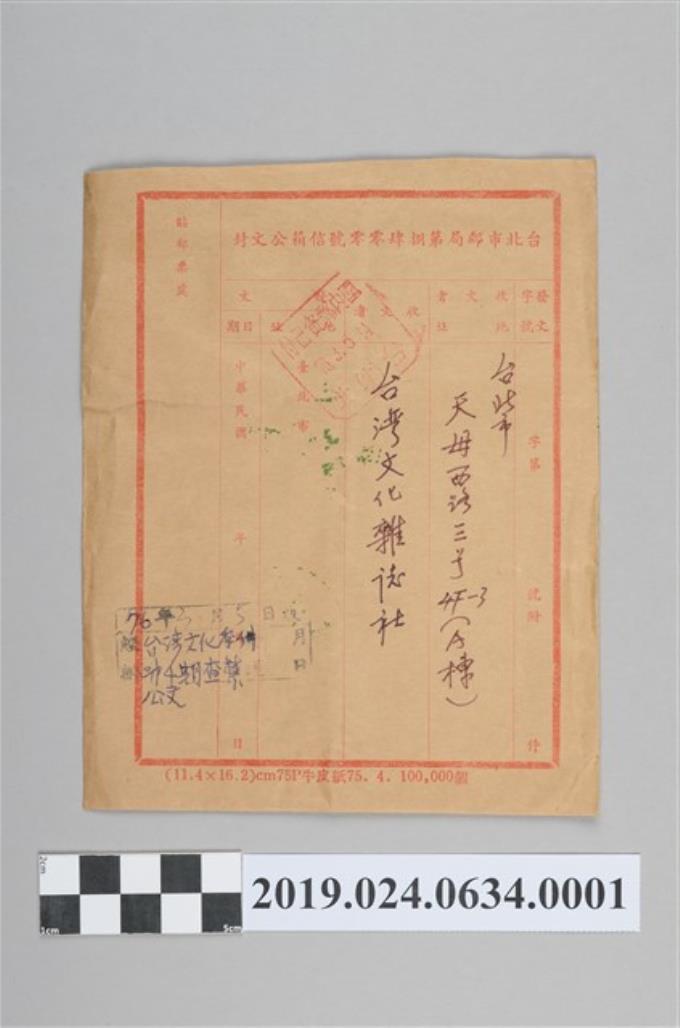 台北市郵局第捌肆零零號信箱公文封
貼郵票處
發文
字號
字第
號附
件
收文者
地址
台北市
天母西路三号4F-3(A棟)
收文者
台湾文化雜誌社
臺北市
文
日期
中華民國
年
日
76年
5日
月
日
台湾文化季刊
期查禁
公文
(11.4×16.2)cm75P牛皮紙75. 4. 100,000個
2cm
1cm
5cm
2019.024.0634.0001